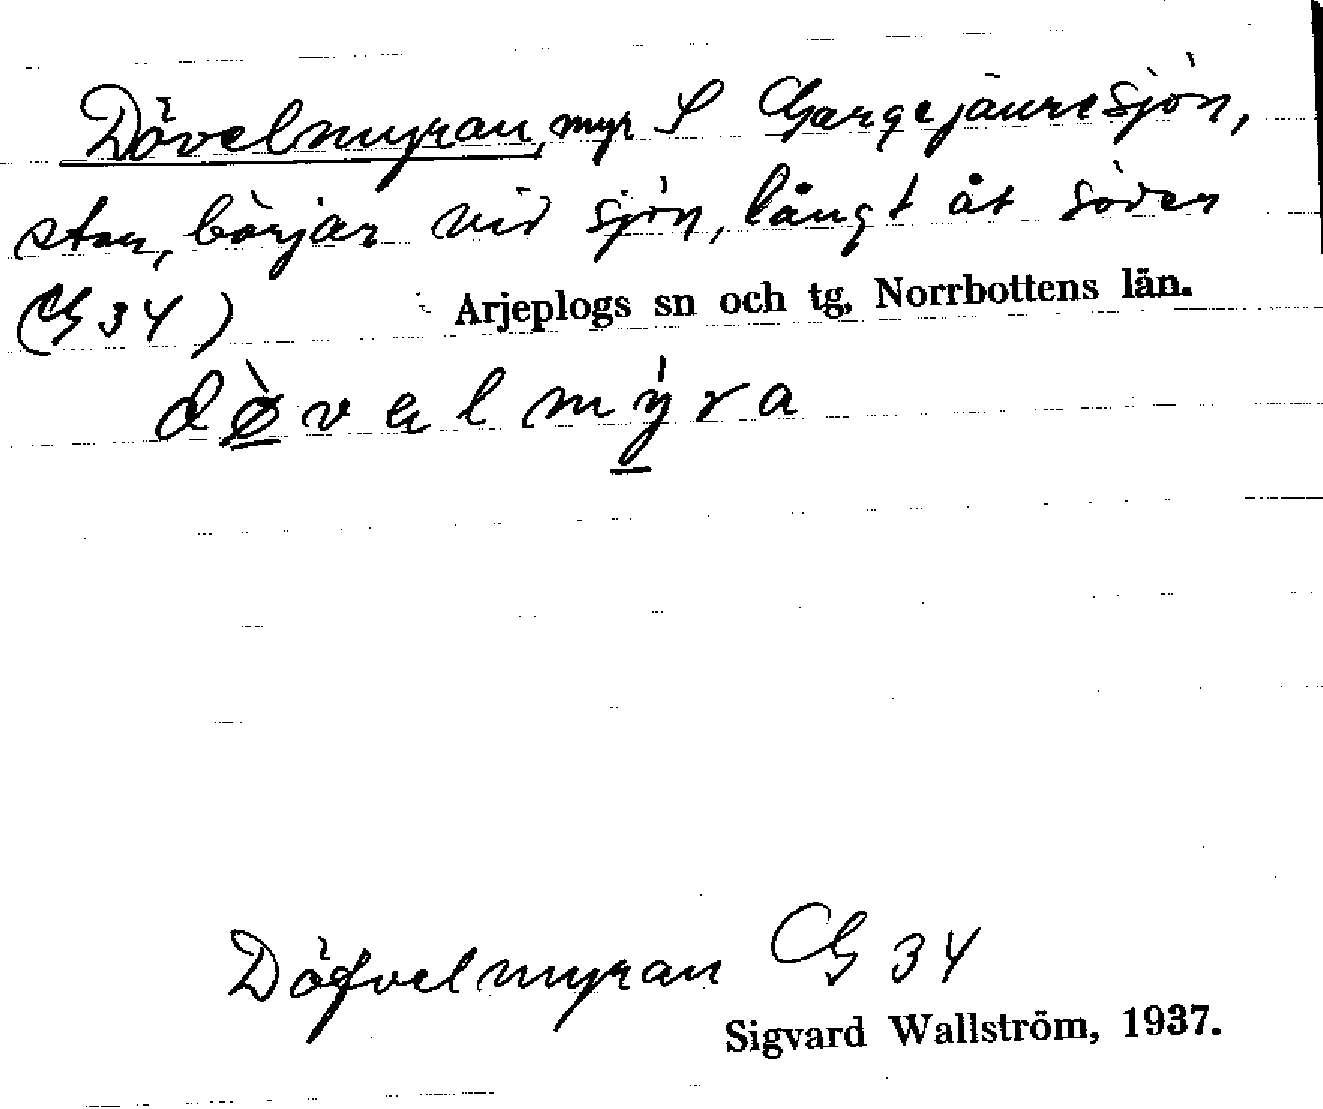 Dövelmyran, myr S Gargejauresjön,
stor, börjar vid sjön, långt åt söder
(G 34)
Arjeplogs sn och tg, Norrbottens län.
dø̀vəlmýra
Döfvelmyran G 34
Sigvard Wallström, 1937.